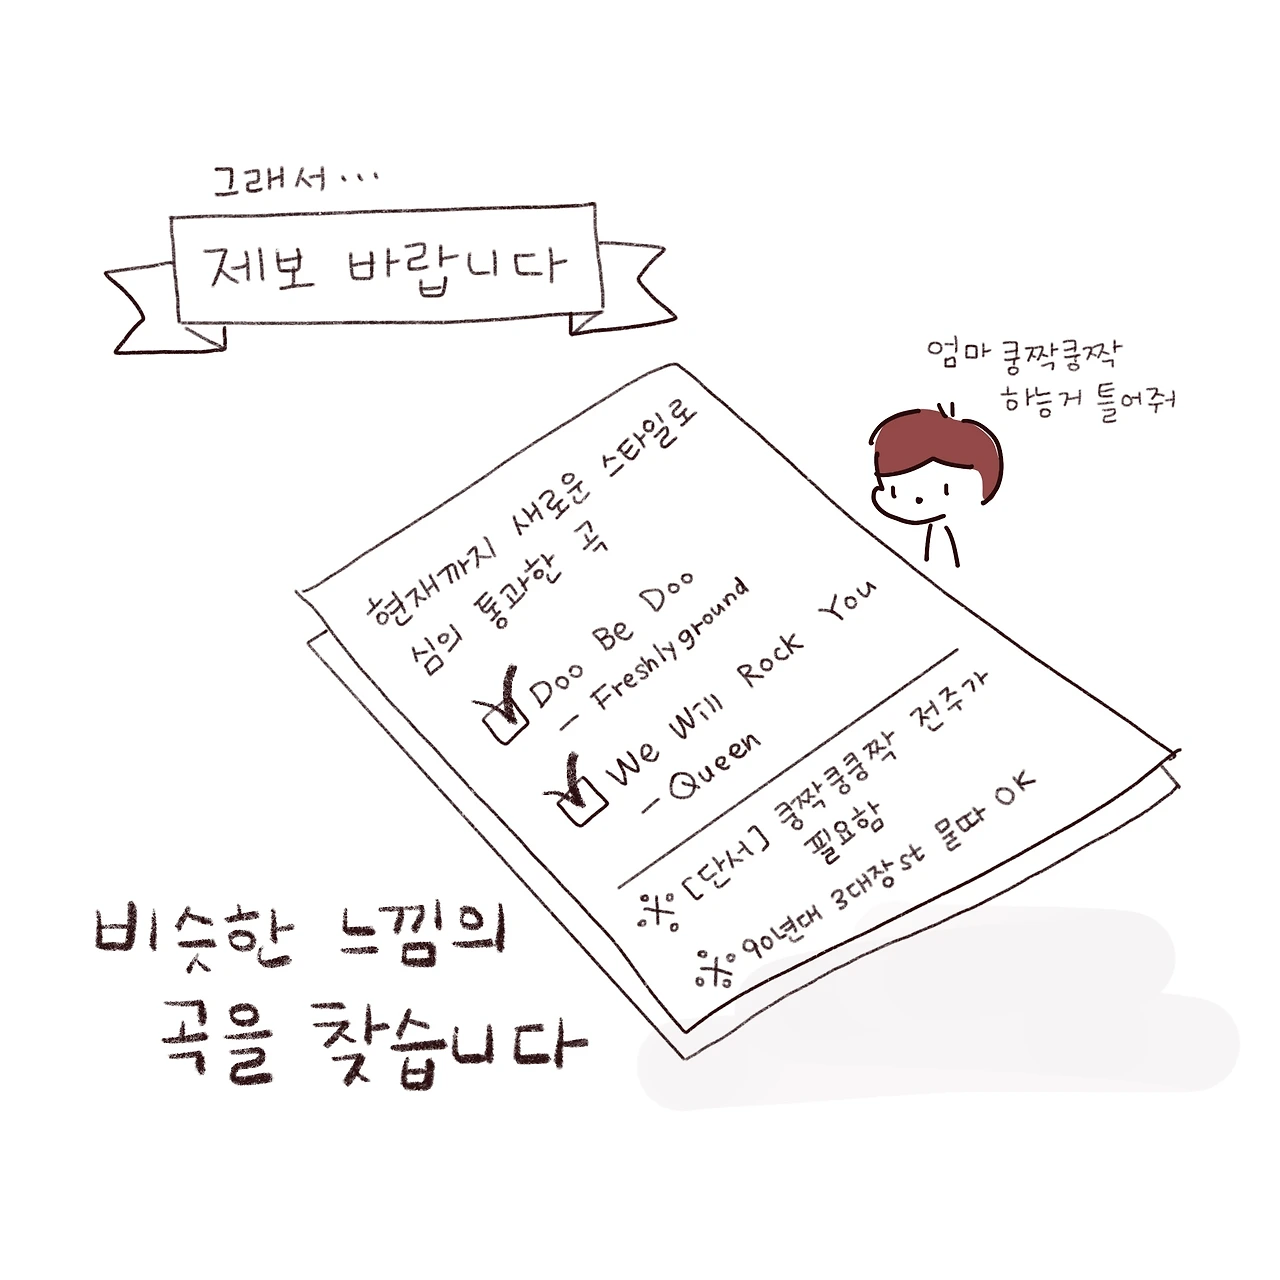 그래서...
제보 바랍니다
엄마 쿵짝쿵짝
하능거 틀어줘
현재까지 새로운 스타일로
심의 통과한 곡
Doo Be Doo
- Freshlyground
We Will Rock You
- Queen
※ [단서] 쿵짝쿵쿵짝 전주가
필요함
※ 90년대 3대장st 물따 OK
비슷한 느낌의
곡을 찾습니다